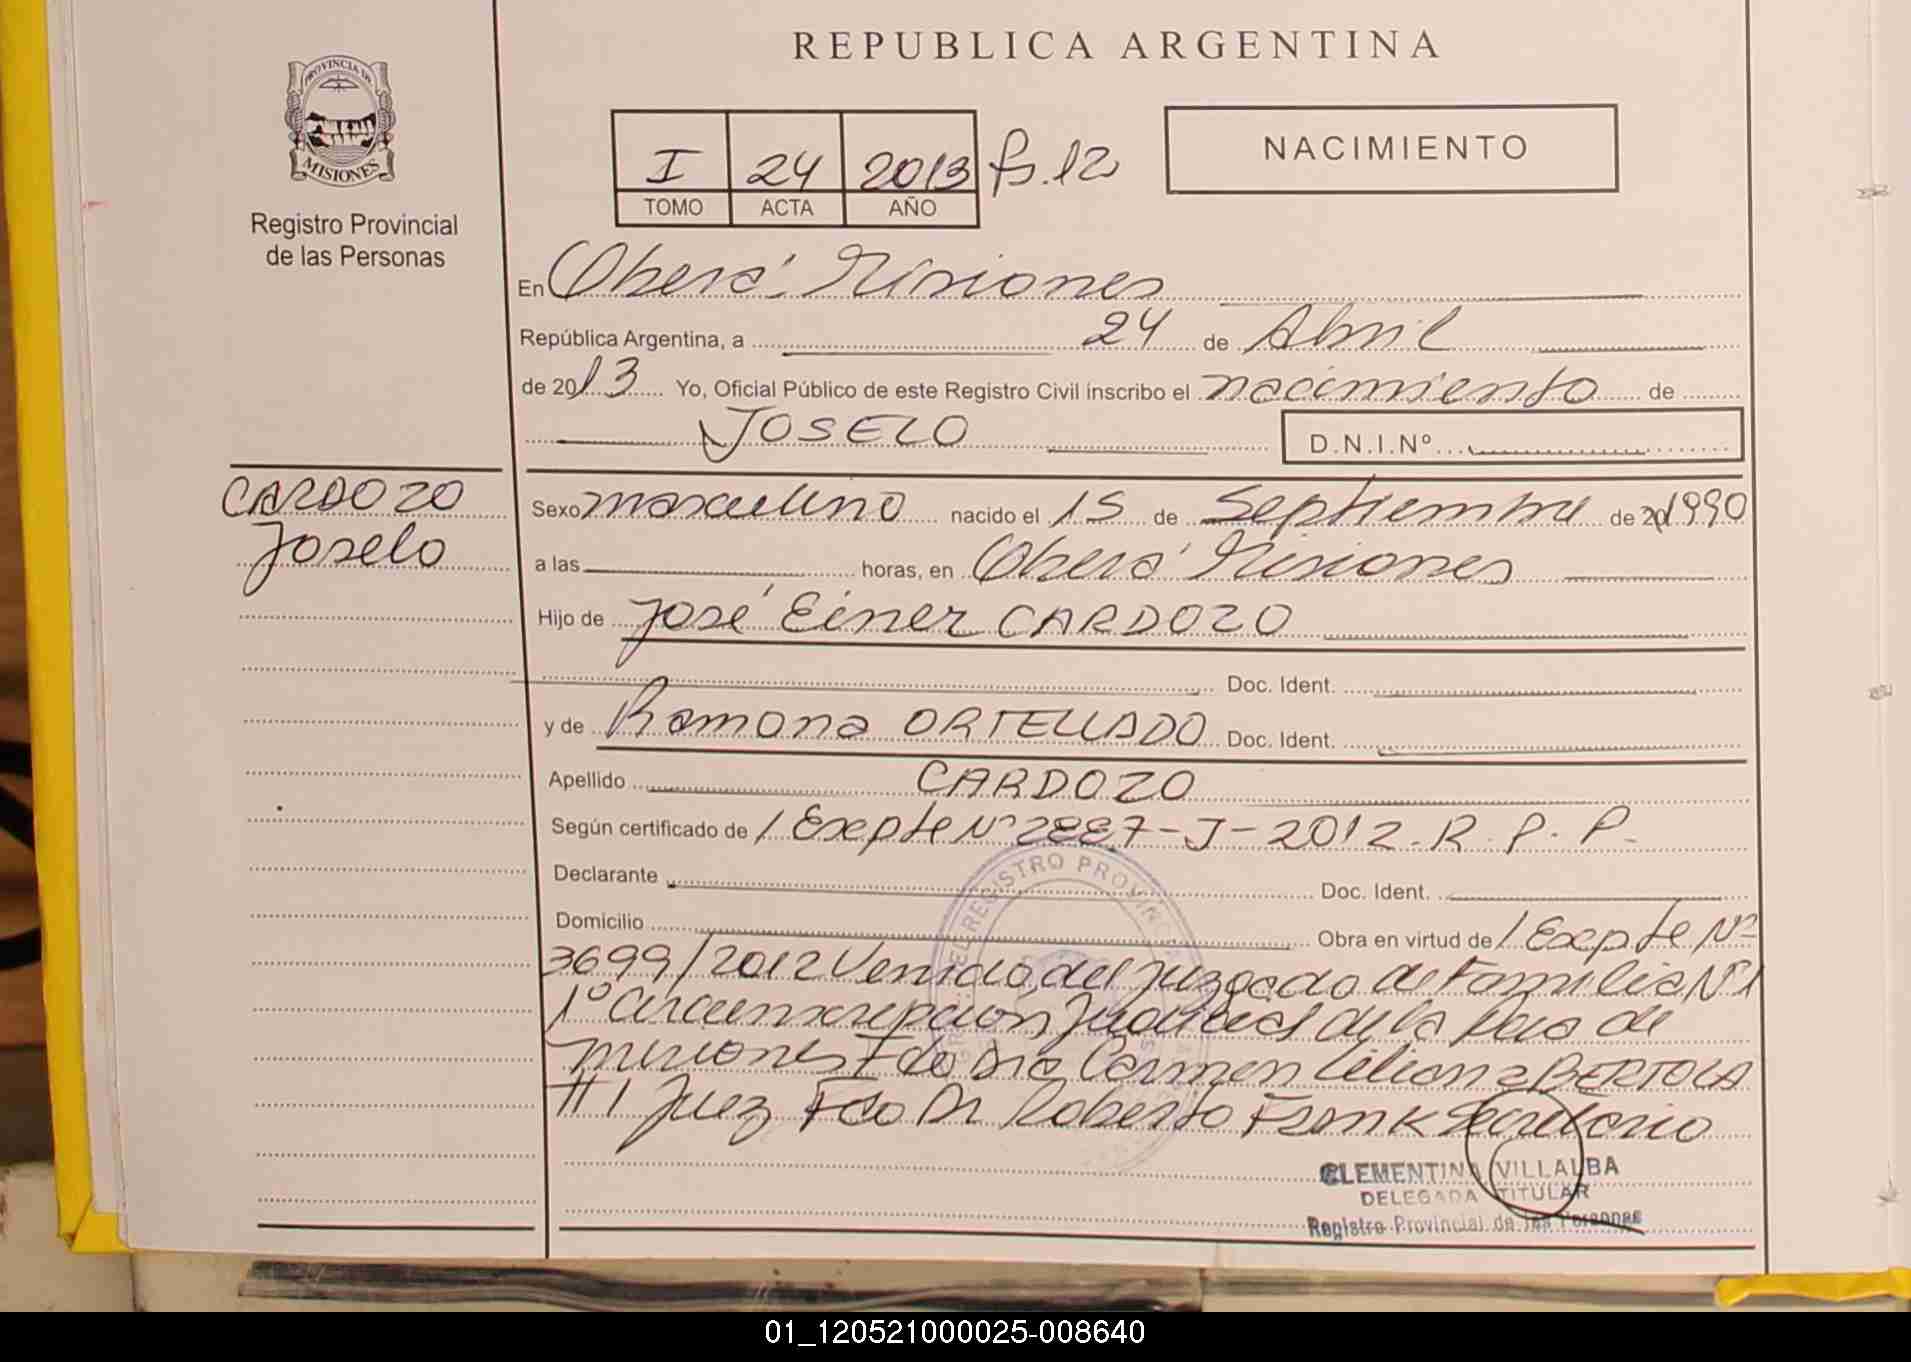 REPUBLICA ARGENTINA
PROVINCIA DE
MISIONES
Registro Provincial
de las Personas
I 24 2013 fs. 12
TOMO ACTA AÑO
NACIMIENTO
En Oberá Misiones
República Argentina, a 24 de Abril
de 2013 Yo, Oficial Público de este Registro Civil inscribo el nacimiento de
JOSELO D.N.I.Nº
CARDOZO
Joselo
Sexo masculino nacido el 15 de Septiembre de 20 1990
a las horas, en Oberá Misiones
Hijo de José Einer CARDOZO
Doc. Ident.
y de Ramona ORTELLADO Doc. Ident.
Apellido CARDOZO
Según certificado de / Expte Nº 2887-J-2012. R. P. P.
Declarante Doc. Ident.
Domicilio Obra en virtud de / Expte Nº
3699/2012 Venido del Juzgado de Familia Nº1
1º Circunscripción Judicial de la de
Misiones Fdo Dra Carmen Liliana BERTOLA
/// Juez Fdo Dr Roberto Frank Secretario
DEL REGISTRO PROVINCIAL
CLEMENTINA VILLALBA
DELEGADA TITULAR
Registro Provincial de las Personas
01_120521000025-008640